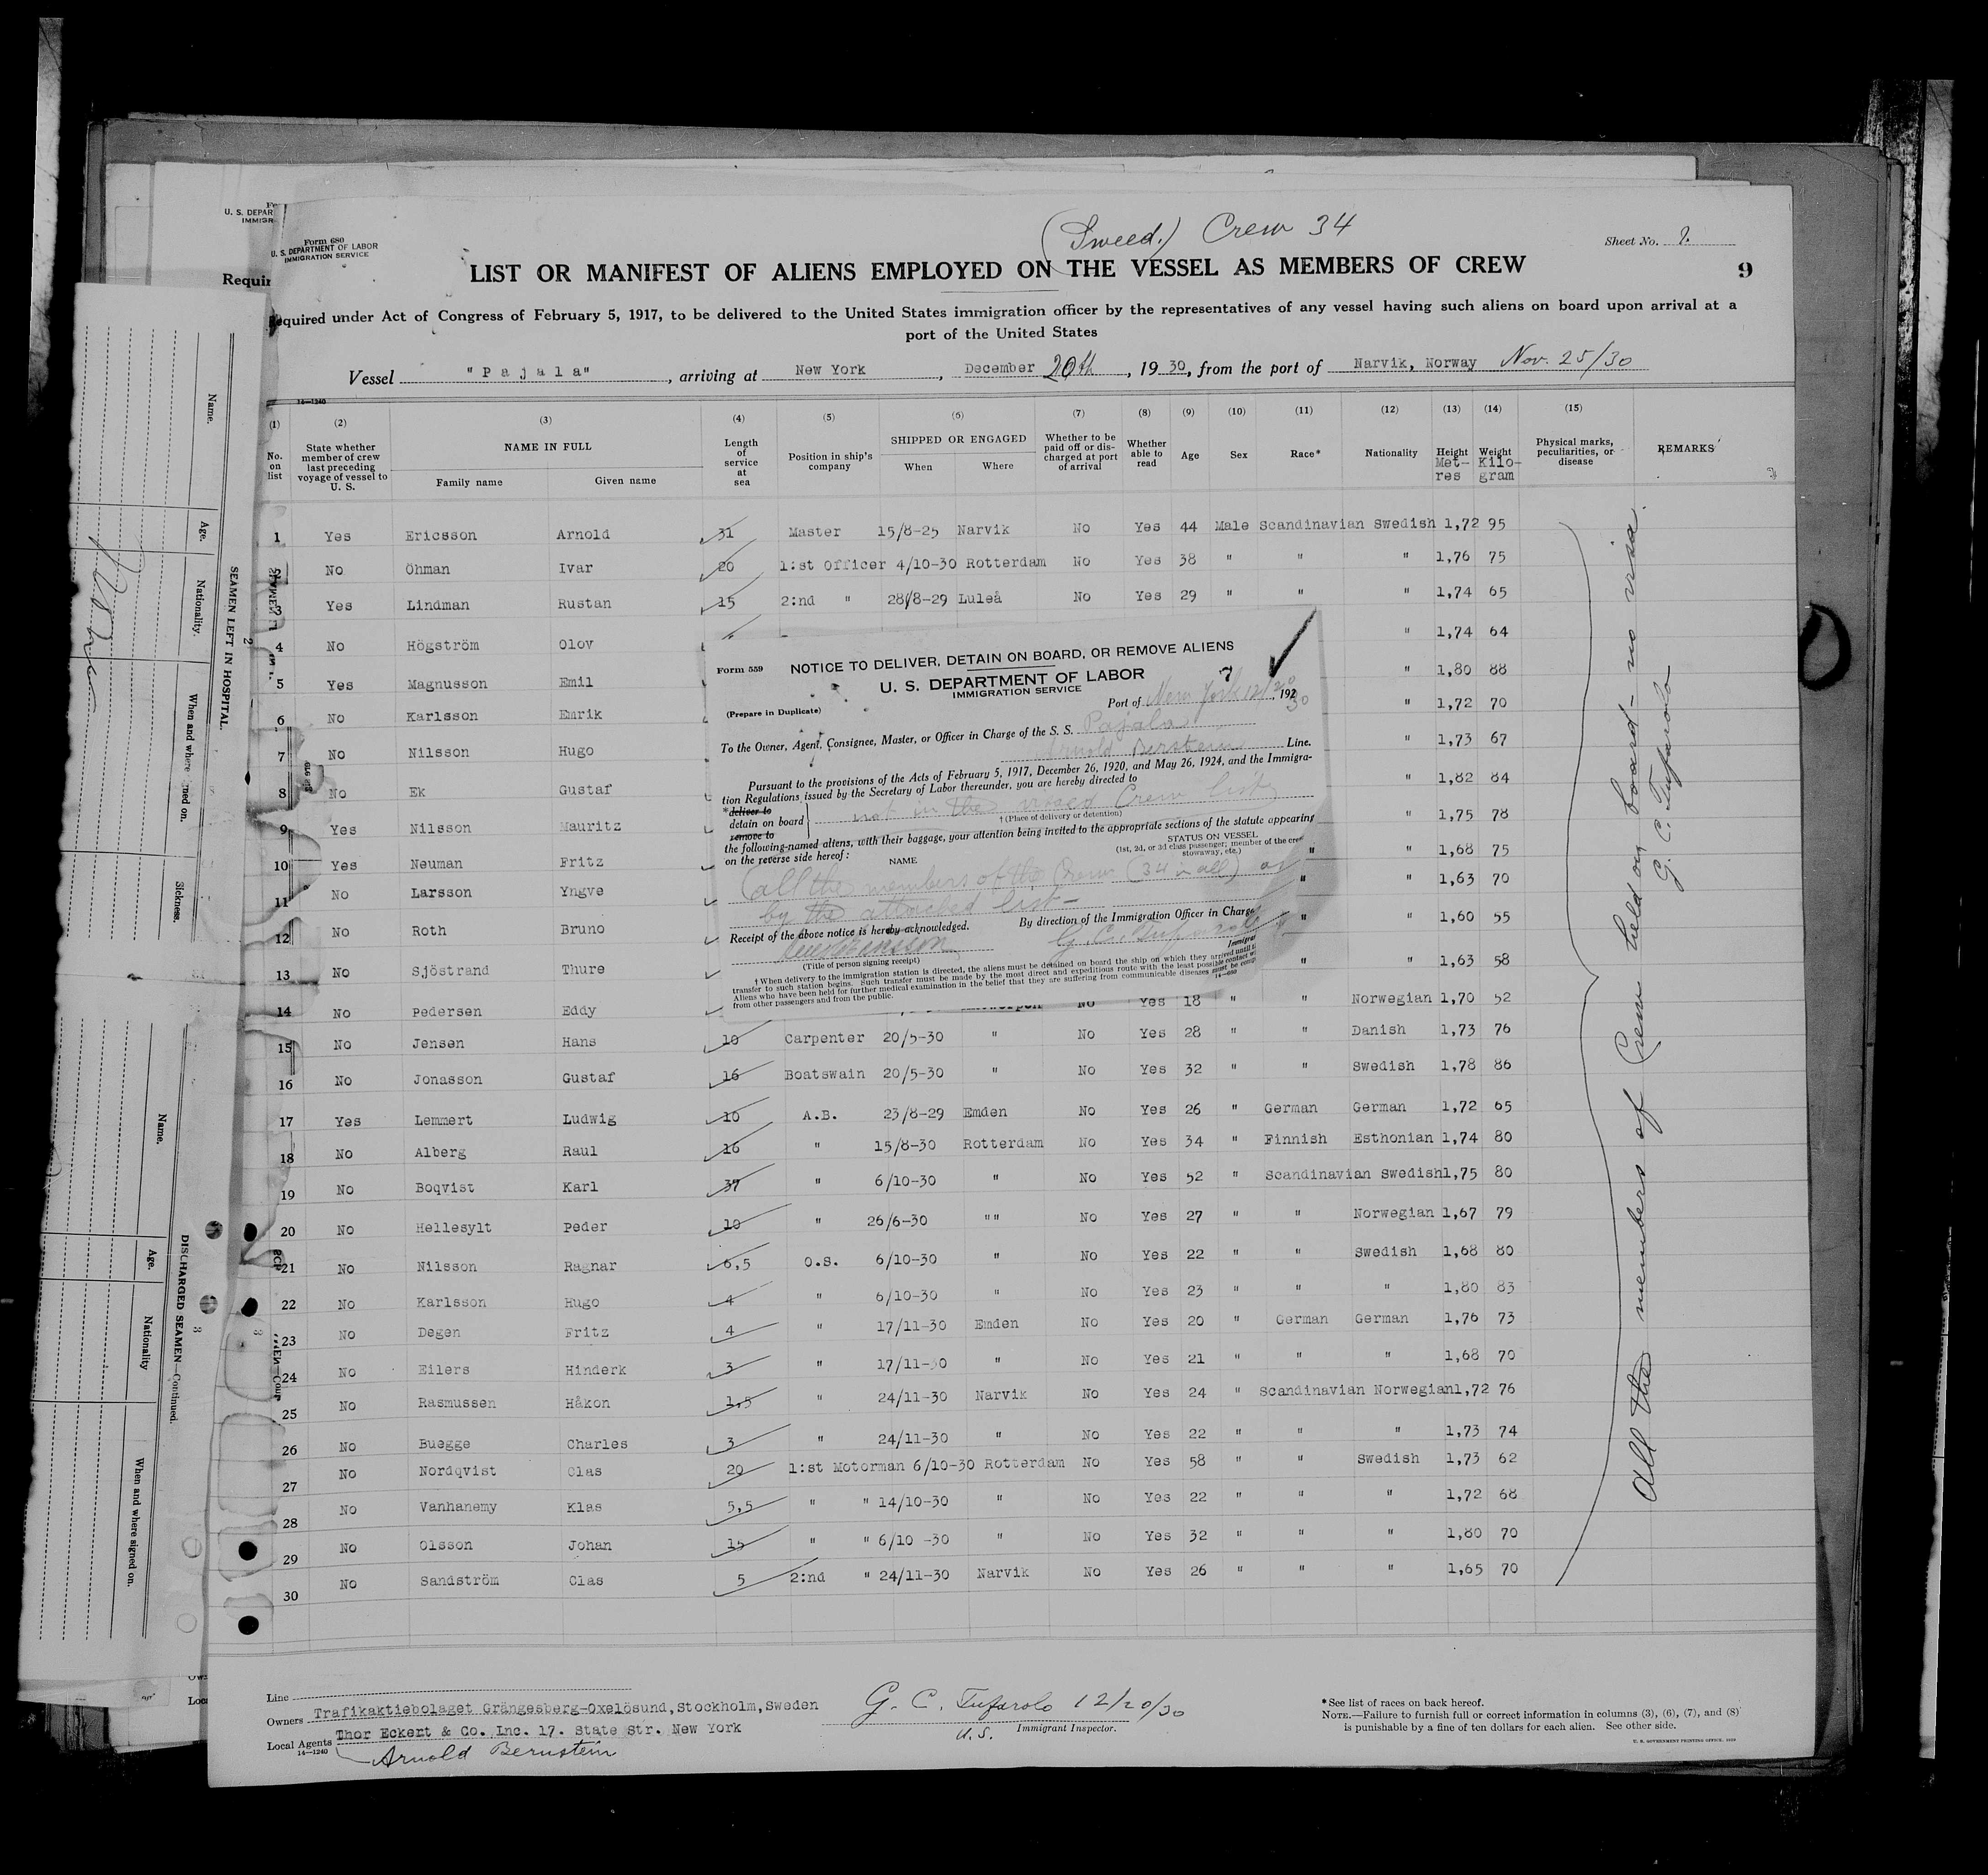 (Sweed.) Crew 34
Form 680
U. S. DEPARTMENT OF LABOR
IMMIGRATION SERVICE
Sheet No. 1.
LIST OR MANIFEST OF ALIENS EMPLOYED ON THE VESSEL AS MEMBERS OF CREW
9
equired under Act of Congress of February 5, 1917, to be delivered to the United States immigration officer by the representatives of any vessel having such aliens on board upon arrival at a
port of the United States
Vessel "Pajala", arriving at New York, December 20th, 1930, from the port of Narvik, Norway Nov. 25/30
14—1240
(1) (2) (3) (4) (5) (6) (7) (8) (9) (10) (11) (12) (13) (14) (15)
No. on list
State whether member of crew last preceding voyage of vessel to U. S.
NAME IN FULL
Family name Given name
Length of service at sea
Position in ship's company
SHIPPED OR ENGAGED
When Where
Whether to be paid off or discharged at port of arrival
Whether able to read
Age
Sex
Race*
Nationality
Height Metres
Weight Kilogram
Physical marks, peculiarities, or disease
REMARKS
1 Yes Ericsson Arnold 31 Master 15/8-25 Narvik No Yes 44 Male Scandinavian Swedish 1,72 95
2 No Öhman Ivar 20 1:st Officer 4/10-30 Rotterdam No Yes 38 " " " 1,76 75
3 Yes Lindman Rustan 15 2:nd " 28/8-29 Luleå No Yes 29 " " " 1,74 65
4 No Högström Olov " 1,74 64
5 Yes Magnusson Emil " 1,80 88
6 No Karlsson Emrik " 1,72 70
7 No Nilsson Hugo " 1,73 67
8 No Ek Gustaf " 1,82 84
9 Yes Nilsson Mauritz " 1,75 78
10 Yes Neuman Fritz " " 1,68 75
11 No Larsson Yngve " " 1,63 70
12 No Roth Bruno " " 1,60 55
13 No Sjöstrand Thure " " 1,63 58
14 No Pedersen Eddy No Yes 18 " " Norwegian 1,70 52
15 No Jensen Hans 10 Carpenter 20/5-30 " No Yes 28 " " Danish 1,73 76
16 No Jonasson Gustaf 16 Boatswain 20/5-30 " No Yes 32 " " Swedish 1,78 86
17 Yes Lemmert Ludwig 10 A.B. 23/8-29 Emden No Yes 26 " German German 1,72 65
18 No Alberg Raul 16 " 15/8-30 Rotterdam No Yes 34 " Finnish Esthonian 1,74 80
19 No Boqvist Karl 37 " 6/10-30 " No Yes 52 " Scandinavian Swedish 1,75 80
20 No Hellesylt Peder 10 " 26/6-30 "" No Yes 27 " " Norwegian 1,67 79
21 No Nilsson Ragnar 6,5 O.S. 6/10-30 " No Yes 22 " " Swedish 1,68 80
22 No Karlsson Hugo 4 " 6/10-30 " No Yes 23 " " " 1,80 83
23 No Degen Fritz 4 " 17/11-30 Emden No Yes 20 " German German 1,76 73
24 No Eilers Hinderk 3 " 17/11-30 " No Yes 21 " " " 1,68 70
25 No Rasmussen Håkon 1,5 " 24/11-30 Narvik No Yes 24 " Scandinavian Norwegian 1,72 76
26 No Buegge Charles 3 " 24/11-30 " No Yes 22 " " " 1,73 74
27 No Nordqvist Clas 20 1:st Motorman 6/10-30 Rotterdam No Yes 58 " " Swedish 1,73 62
28 No Vanhanemy Klas 5,5 " " 14/10-30 " No Yes 22 " " " 1,72 68
29 No Olsson Johan 15 " " 6/10 -30 " No Yes 32 " " " 1,80 70
30 No Sandström Clas 5 2:nd " 24/11-30 Narvik No Yes 26 " " " 1,65 70
All the members of Crew held on board - no visa.
G. C. Tufarolo
Form 559
NOTICE TO DELIVER, DETAIN ON BOARD, OR REMOVE ALIENS
U. S. DEPARTMENT OF LABOR
IMMIGRATION SERVICE
7
(Prepare in Duplicate)
Port of New York 12/20, 192 30
To the Owner, Agent, Consignee, Master, or Officer in Charge of the S. S. Pajala
Arnold Bernstein Line.
Pursuant to the provisions of the Acts of February 5, 1917, December 26, 1920, and May 26, 1924, and the Immigra-
tion Regulations issued by the Secretary of Labor thereunder, you are hereby directed to
*deliver to
detain on board
remove to
not in the visaed Crew list
†(Place of delivery or detention)
the following-named aliens, with their baggage, your attention being invited to the appropriate sections of the statute appearing
on the reverse side hereof:
NAME
STATUS ON VESSEL
(1st, 2d, or 3d class passenger; member of the crew
stowaway, etc.)
(all the members of the Crew (34 in all) as
by the attached list -
Receipt of the above notice is hereby acknowledged.
By direction of the Immigration Officer in Charge
G. C. Tufarolo
(Title of person signing receipt)
† When delivery to the immigration station is directed, the aliens must be detained on board the ship on which they arrived until
transfer to such station begins. Such transfer must be made by the most direct and expeditious route with the least possible contact
Aliens who have been held for further medical examination in the belief that they are suffering from communicable diseases must be
from other passengers and from the public.
14—680
Line
Owners Trafikaktiebolaget Grängesberg-Oxelösund, Stockholm, Sweden
Local Agents Thor Eckert & Co. Inc. 17. State Str. New York
14—1240
Arnold Bernstein
G. C. Tufarolo 12/20/30
U.S. Immigrant Inspector.
*See list of races on back hereof.
NOTE.—Failure to furnish full or correct information in columns (3), (6), (7), and (8)
is punishable by a fine of ten dollars for each alien. See other side.
U. S. GOVERNMENT PRINTING OFFICE
U. S. DEPAR
IMMIGR
Requir
2
SEAMEN LEFT IN HOSPITAL.
Name.
Age.
Nationality.
When and where
Sickness.
3
DISCHARGED SEAMEN—Continued.
Name.
Age.
Nationality
When and where signed on.